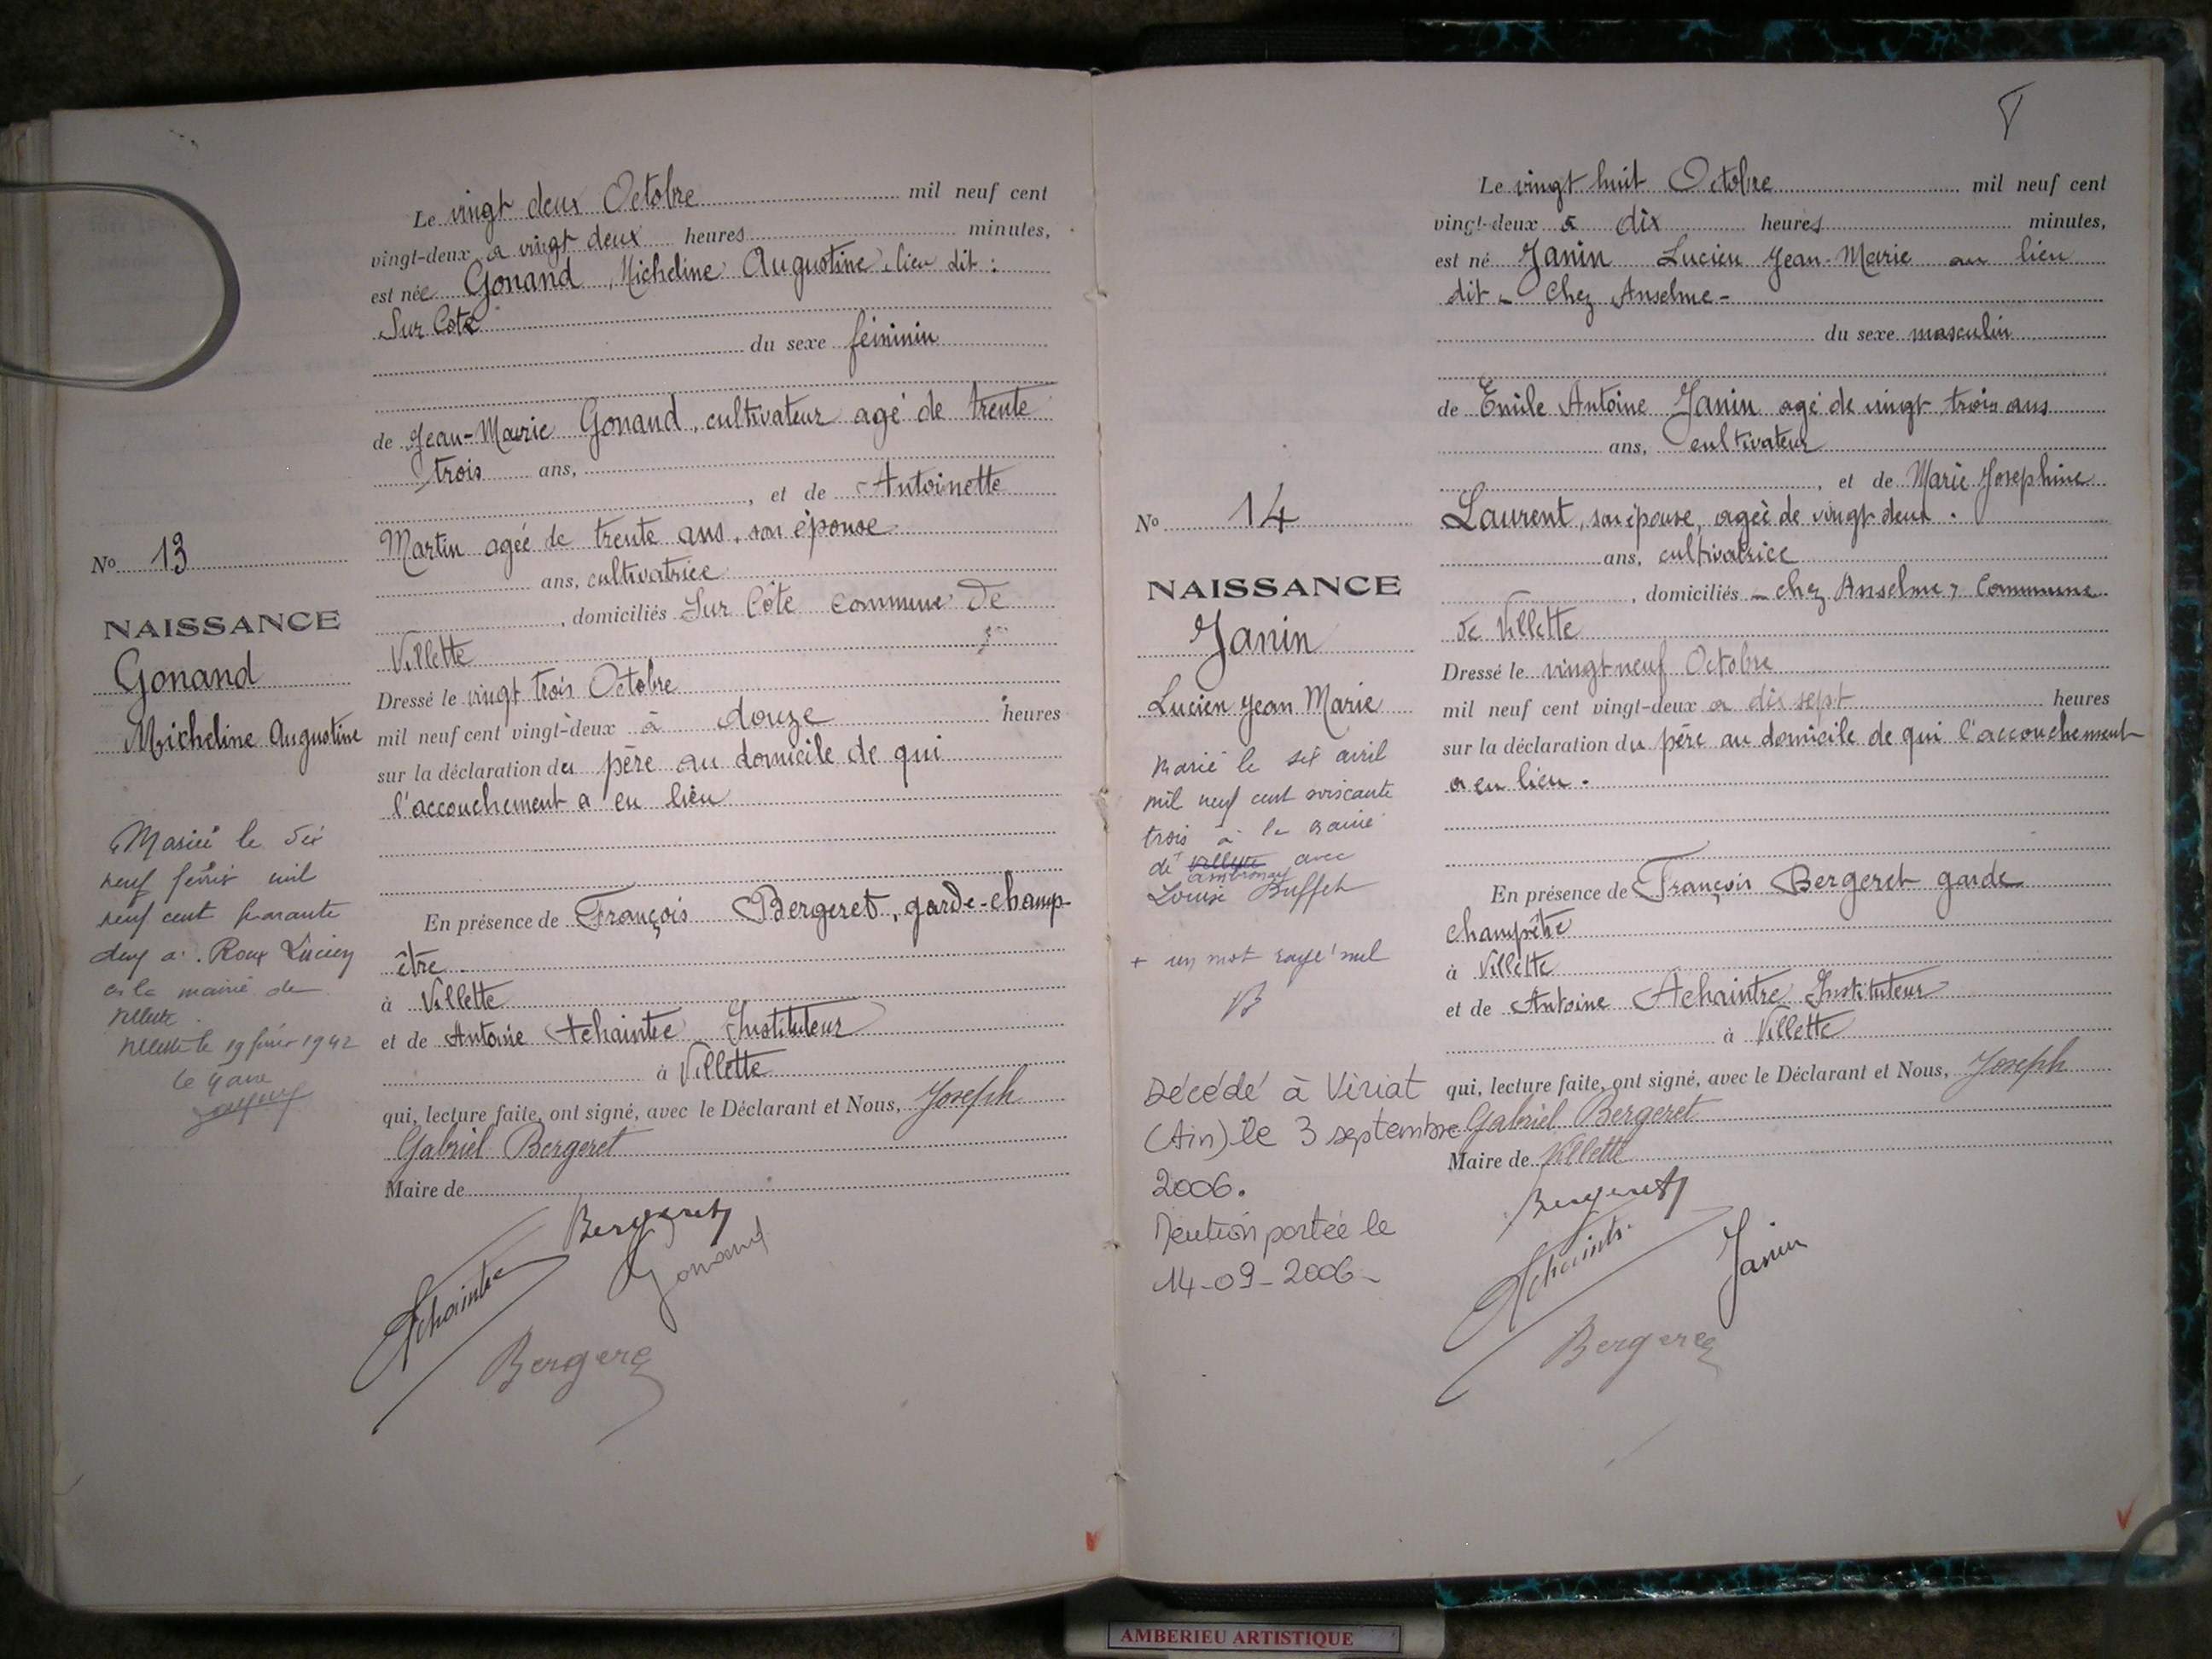 Le vingt deux Octobre mil neuf cent
vingt-deux a vingt deux heures minutes,
est née Gonand Micheline Augustine lieu dit :
Sur Côte
du sexe féminin
de Jean-Marie Gonand, cultivateur agé de trente
trois ans,
, et de Antoinette
Martin agée de trente ans, son épouse
ans, cultivatrice
, domiciliés Sur Côte commune de
Villette
Dressé le vingt trois Octobre
mil neuf cent vingt-deux à douze heures
sur la déclaration du père au domicile de qui
l'accouchement a eu lieu
En présence de François Bergeret, garde-champ-
être
à Villette
et de Antoine Achaintre Instituteur
à Villette
qui, lecture faite, ont signé, avec le Déclarant et Nous, Joseph
Gabriel Bergeret
Maire de
Bergeret
Gonand
Achaintre
Bergeret
No 13
NAISSANCE
Gonand
Micheline Augustine
Mariée le dix
neuf février mil
neuf cent quarante
deux à Roux Lucien
à la mairie de
Villette
Villette le 19 février 1942
le Maire
Le vingt huit Octobre mil neuf cent
vingt-deux à dix heures minutes,
est né Janin Lucien Jean-Marie au lieu
dit - Chez Anselme -
du sexe masculin
de Emile Antoine Janin agé de vingt trois ans
ans, cultivateur
, et de Marie Josephine
Laurent, son épouse, agée de vingt-deux.
ans, cultivatrice
, domiciliés - chez Anselme, commune
de Villette
Dressé le vingt neuf Octobre
mil neuf cent vingt-deux a dix sept heures
sur la déclaration du père au domicile de qui l'accouchement
a eu lieu.
En présence de François Bergeret garde
champêtre
à Villette
et de Antoine Achaintre Instituteur
à Villette
qui, lecture faite, ont signé, avec le Déclarant et Nous, Joseph
Gabriel Bergeret
Maire de Villette
Bergeret
Achaintre
Janin
Bergeret
No 14
NAISSANCE
Janin
Lucien Jean Marie
Marié le six avril
mil neuf cent soixante
trois à la mairie
de Villette avec
Ambronay
Louise Buffet
+ un mot rayé nul
Décédé à Viriat
(Ain) le 3 septembre
2006.
Mention portée le
14-09-2006-
AMBERIEU ARTISTIQUE